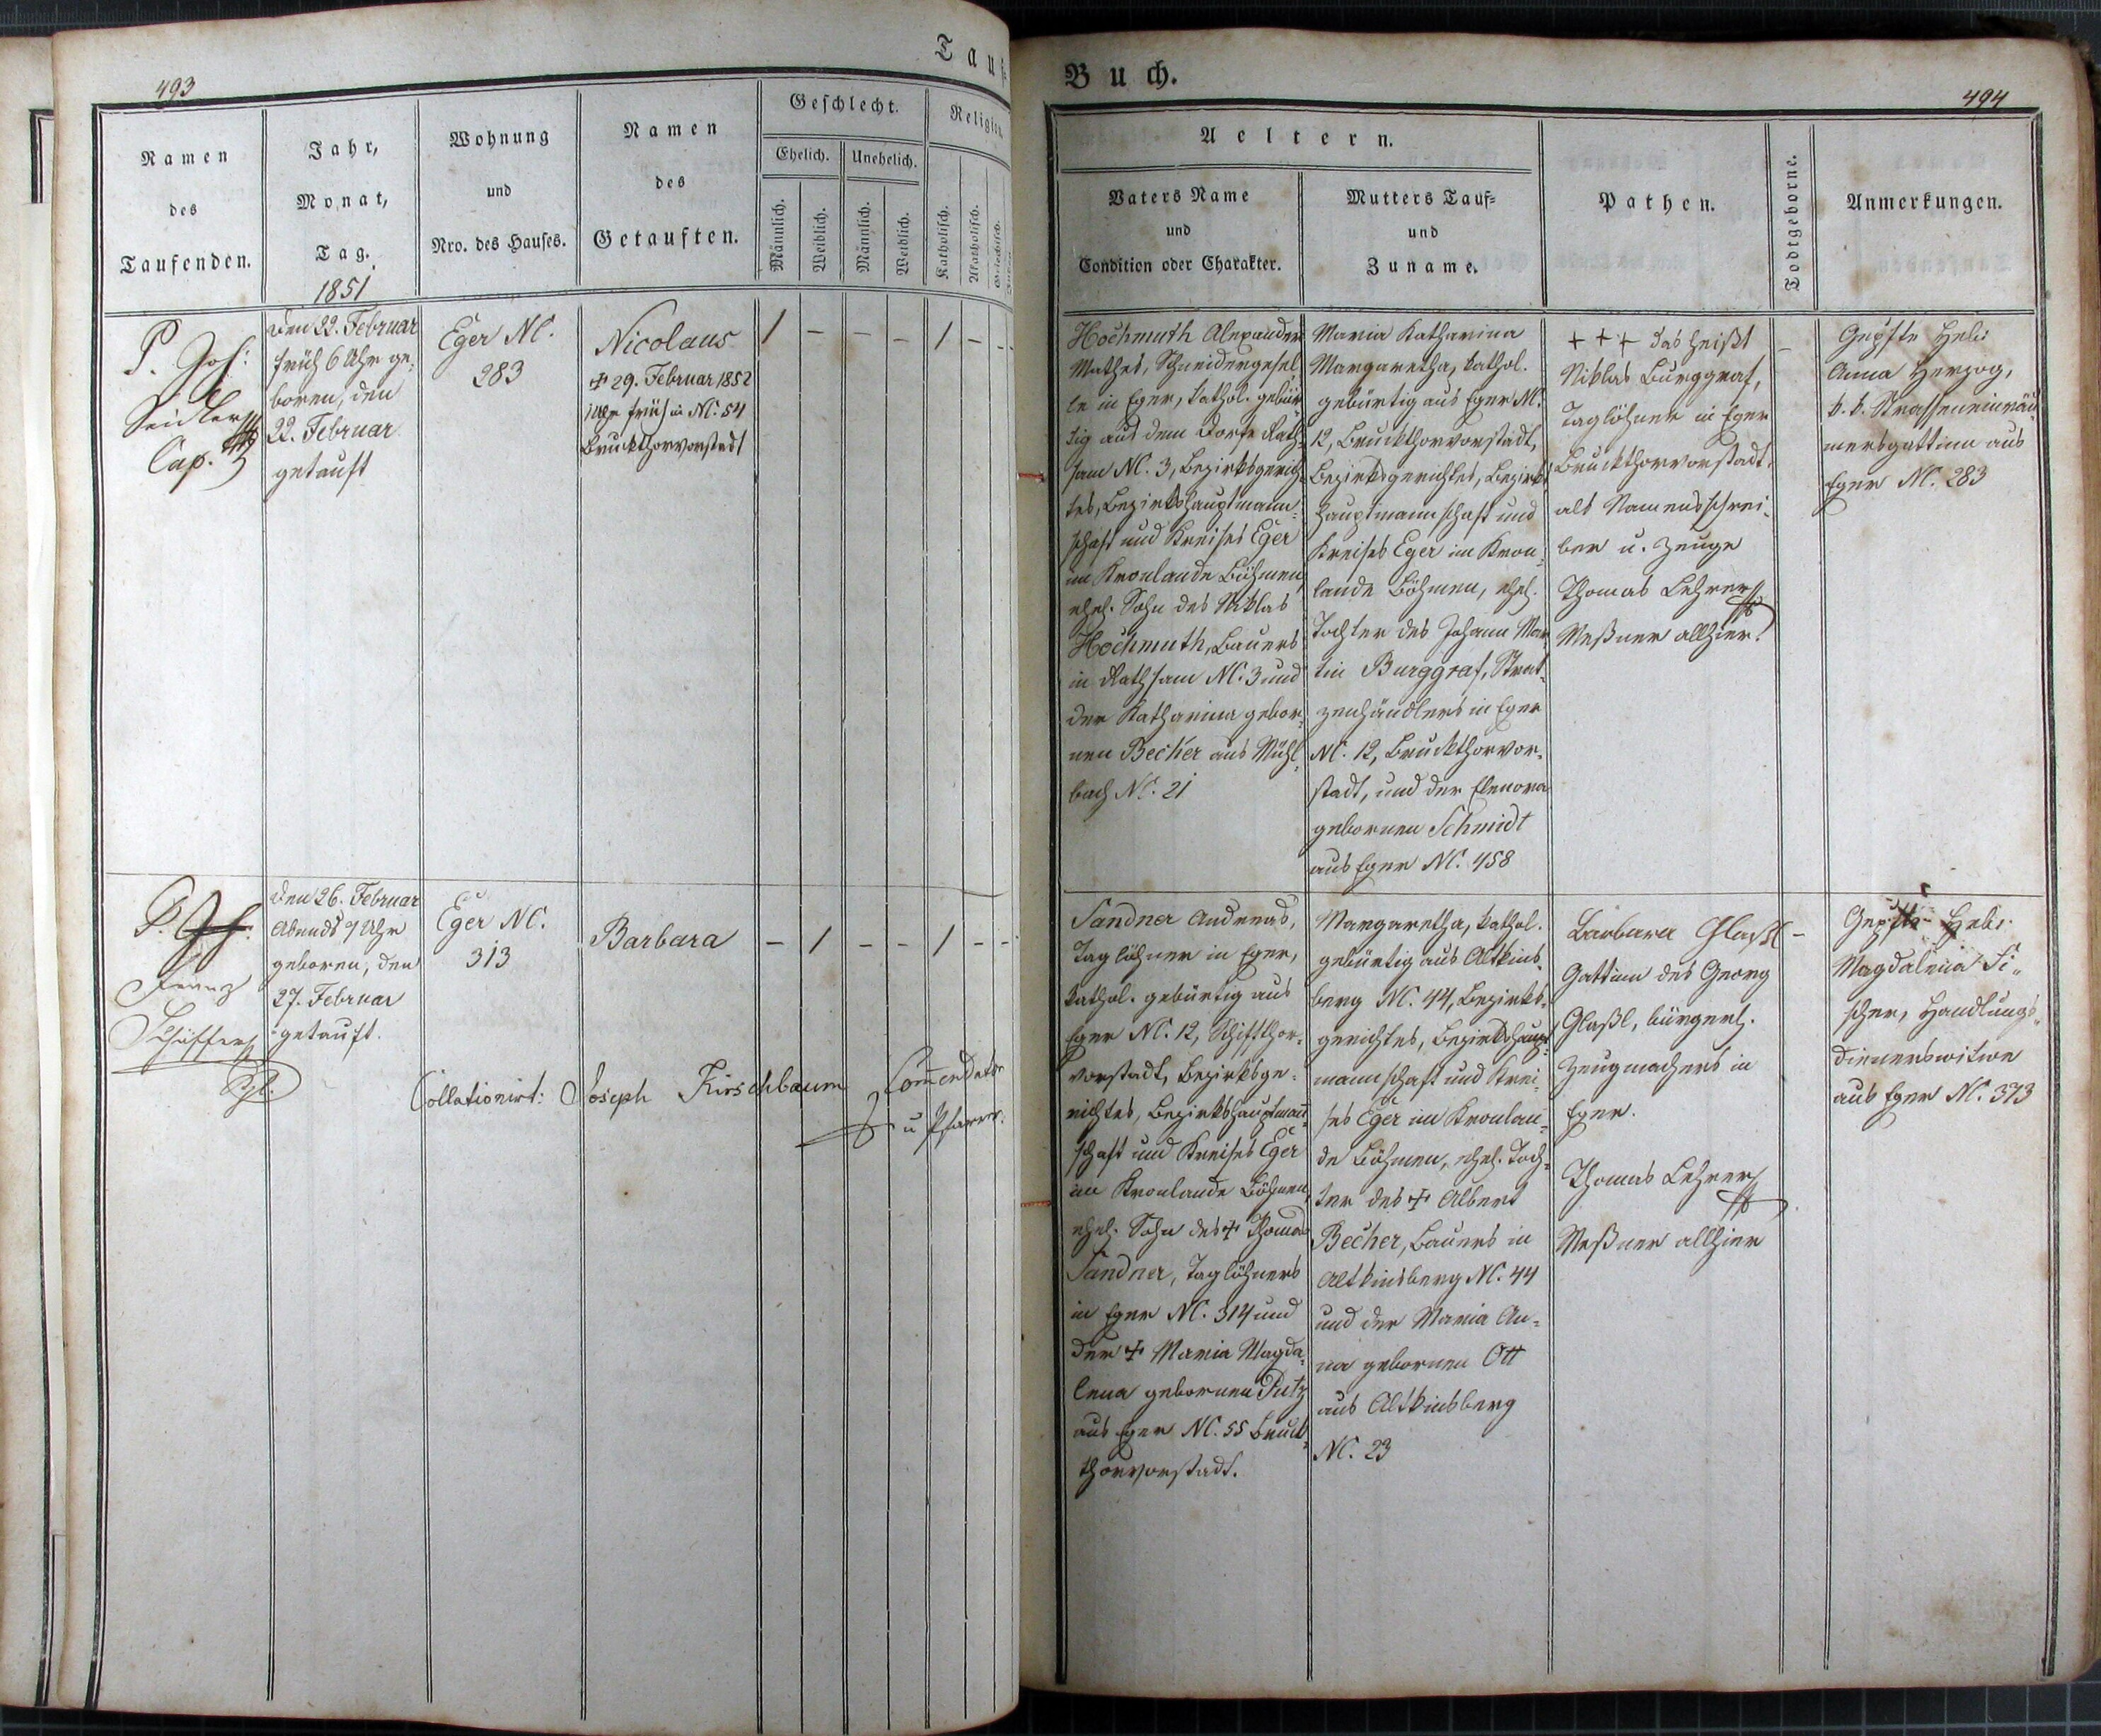 Tauf
493
Namen
des
Taufenden.
Jahr,
Monat,
Tag.
1851
Wohnung
und
Nro. des Hauses.
Namen
des
Getauften.
Geschlecht.
Ehelich.
Unehelich.
Männlich.
Weiblich.
Männlich.
Weiblich.
Religion.
Katholisch.
Akatholisch.
P. Jos:
Seidler
Cap.
den 22. Februar
früh 6 Uhr ge-
boren, den
22. Februar
getauft
Eger NC.
283
Nicolaus
+ 29. Februar 1852
früh in NC. 54
Bruckthorvorstadt
1 – – – 1 – –
P.
Franz
Schiffer
den 26. Februar
Abends 7 Uhr
geboren, den
27. Februar
getauft.
Eger NC.
313
Barbara
– 1 – – 1 – –
Collationirt: Joseph Kirschbaum Com̅endator
u Pfarrer.
Buch.
494
Aeltern.
Vaters Name
und
Condition oder Charakter.
Mutters Tauf-
und
Zuname.
Pathen.
Todtgeborne.
Anmerkungen.
Hochmuth Alexander
Mathes, Schneidergesel-
le in Eger, kathol. gebür-
tig aus dem Dorfe Rath-
sam NC. 3, Bezirksgerich-
tes, Bezirkshauptmann-
schaft und Kreises Eger
im Kronlande Böhmen,
ehel. Sohn des Niklas
Hochmuth, Bauers
in Rathsam NC. 3 und
der Katharina gebor-
nen Becher aus Mühl-
bach NC. 21
Maria Katharina
Margaretha, kathol.
gebürtig aus Eger NC.
12, Bruckthorvorstadt,
Bezirksgerichtes, Bezirks-
hauptmannschaft und
Kreises Eger im Kron-
lande Böhmen, ehel.
Tochter des Johann Mar-
tin Burggraf, Strat-
zenhändlers in Eger
NC. 12, Bruckthorvor-
stadt, und der Elenora
gebornen Schmidt
aus Eger NC. 458
+ + + das heißt
Niklas Burggraf,
Taglöhner in Eger
Bruckthorvorstadt,
als Namensschrei-
ber u. Zeuge
Thomas Lehrer
Meßner allhier.
–
Geprfte Heb:
Anna Herzog,
k. k. Strasseneinräu-
mersgattinn aus
Eger NC. 283
Sandner Andreas,
Taglöhner in Eger,
kathol. gebürtig aus
Eger NC. 12, Schiffthor-
vorstadt, Bezirksge-
richtes, Bezirkshauptman̅-
schaft und Kreises Eger
im Kronlande Böhmen,
ehel. Sohn des + Thomas
Sandner, Taglöhners
in Eger NC. 314 und
der + Maria Magda-
lena gebornen Putz
aus Eger NC. 55 Bruck-
thorvorstadt.
Margaretha, kathol.
gebürtig aus Altkins-
berg NC. 44, Bezirks-
gerichtes, Bezirkshaupt-
mannschaft und Krei-
ses Eger im Kronlan-
de Böhmen, ehel. Toch-
ter des + Albert
Becher, Bauers in
Altkinsberg NC. 44
und der Maria An-
na gebornen Ott
aus Altkinsberg
NC. 23
Barbara Glaßl
Gattinn des Georg
Glaßl, bürgerl.
Zeugmachers in
Eger.
Thomas Lehrer
Meßner allhier
–
Geprfte Heb:
Magdalena Fi-
scher, Handlungs-
dienerswitwe
aus Eger NC. 373